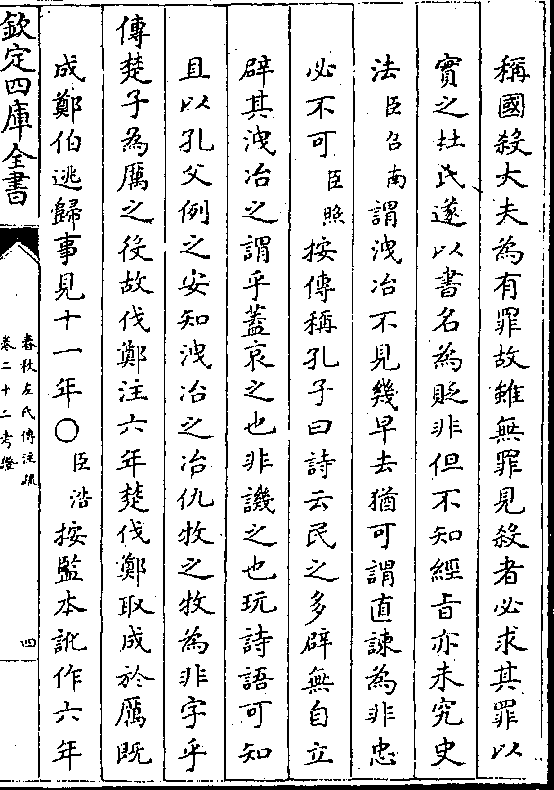 稱國殺大夫為有罪故雖無罪見殺者必求其罪以
實之杜氏遂以書名為貶非但不知經旨亦未究史
法臣召南謂洩冶不見幾早去猶可謂直諫為非忠
必不可臣照按傳稱孔子曰詩云民之多辟無自立
辟其洩冶之謂乎蓋哀之也非譏之也玩詩語可知
且以孔父例之安知洩冶之冶仇牧之牧為非字乎
傳楚子為厲之役故伐鄭注六年楚伐鄭取成於厲既
成鄭伯逃歸事見十一年〇臣浩按監本訛作六年
欽定四庫全書
春秋左氏傳注疏
卷二十二考證
四